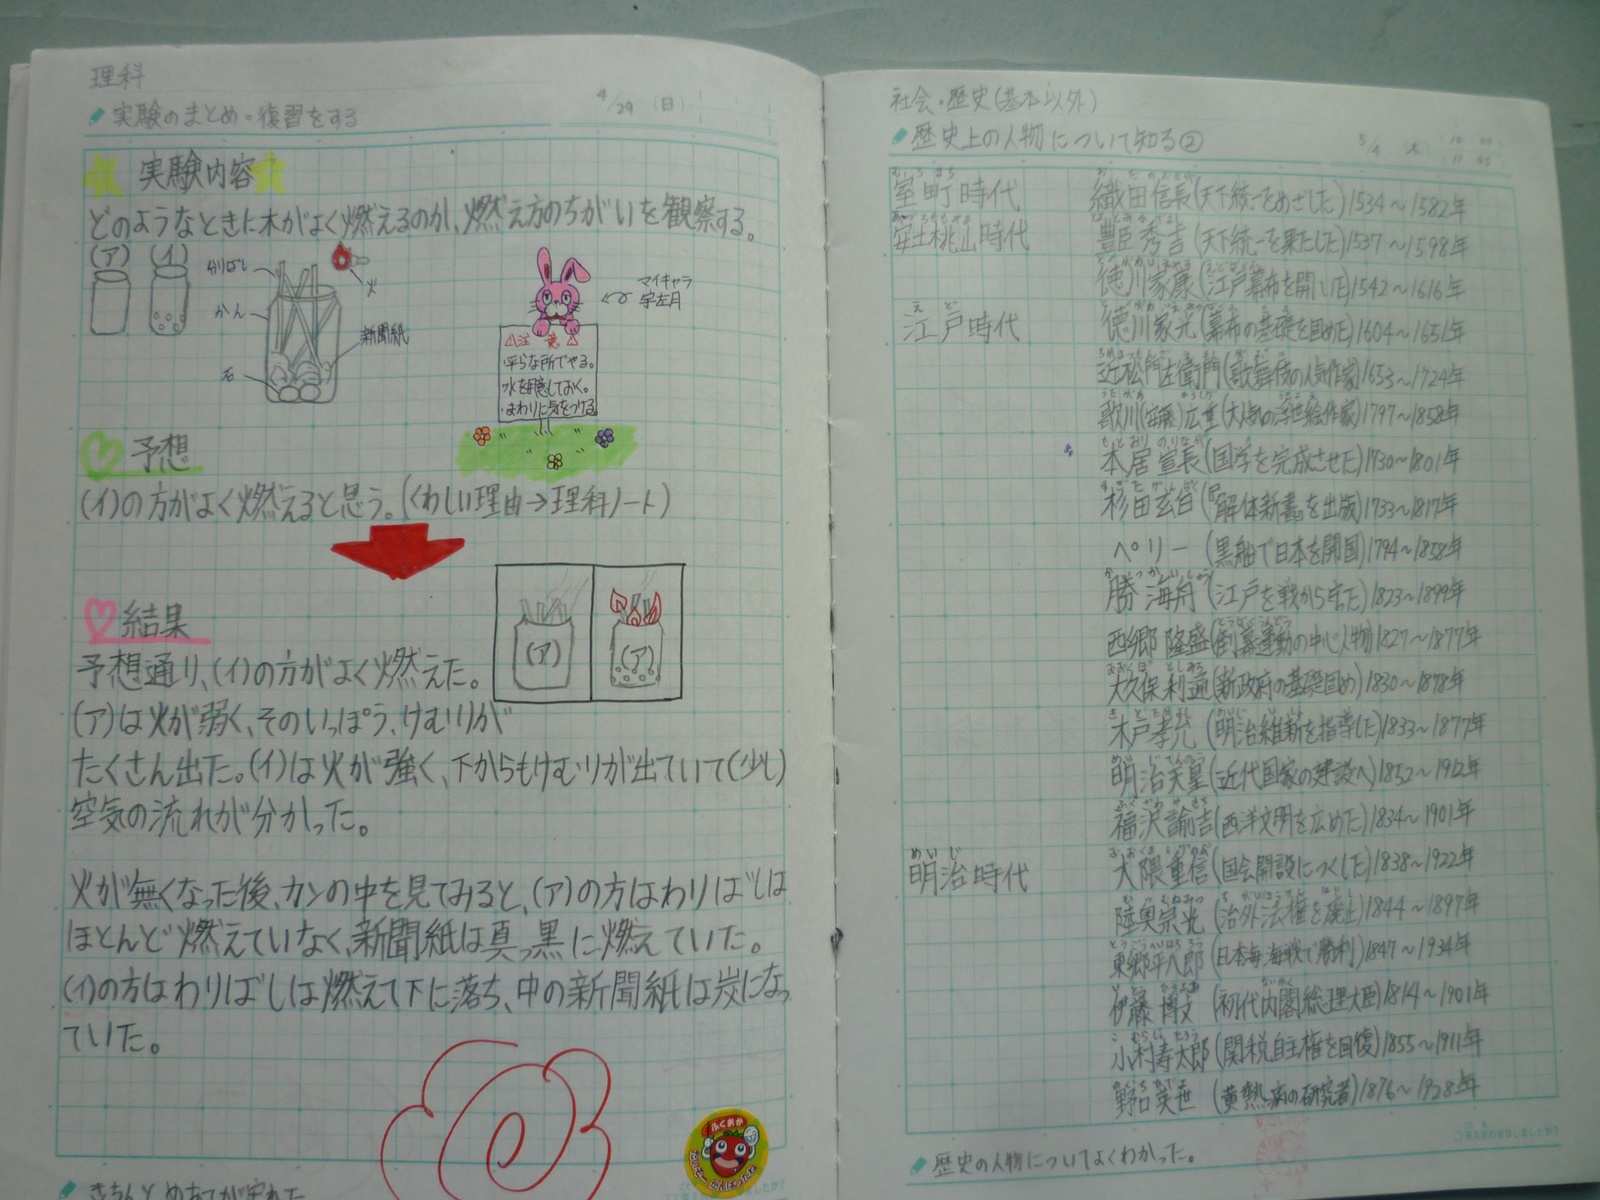 理科
実験のまとめ・復習をする
4/29 (日)
実験内容
どのようなときに木がよく燃えるのか、燃え方のちがいを観察する。
(ア) (イ)
わりばし
かん
石
火
新聞紙
マイキャラ
宇左月
⚠注意⚠
平らな所でやる。
水を用意しておく。
まわりに気をつける
予想
(イ)の方がよく燃えると思う。(くわしい理由→理科ノート)
結果
予想通り、(イ)の方がよく燃えた。
(ア)は火が弱く、そのいっぽう、けむりが
たくさん出た。(イ)は火が強く、下からもけむりが出ていて(少し)
空気の流れが分かった。
(ア) (ア)
火が無くなった後、カンの中を見てみると、(ア)の方はわりばしは
ほとんど燃えていなく、新聞紙は真っ黒に燃えていた。
(イ)の方はわりばしは燃えて下に落ち、中の新聞紙は炭になっ
ていた。
ふくおか
社会・歴史(基本以外)
歴史上の人物について知る②
5/4
室町時代 織田信長(天下統一をめざした)1534〜1582年
安土桃山時代 豊臣秀吉(天下統一を果たした)1537〜1598年
徳川家康(江戸幕府を開いた)1542〜1616年
江戸時代 徳川家光(幕府の基礎を固めた)1604〜1651年
近松門左衛門(歌舞伎の人気作家)1653〜1724年
歌川(安藤)広重(大人気の浮世絵作家)1797〜1858年
本居宣長(国学を完成させた)1730〜1801年
杉田玄白(解体新書を出版)1733〜1817年
ペリー(黒船で日本を開国)1794〜1858年
勝海舟(江戸を戦から守た)1823〜1899年
西郷隆盛(倒幕運動の中心人物)1827〜1877年
大久保利通(新政府の基礎固め)1830〜1878年
木戸孝允(明治維新を指導した)1833〜1877年
明治天皇(近代国家の建設へ)1852〜1912年
福沢諭吉(西洋文明を広めた)1834〜1901年
明治時代 大隈重信(国会開設につくした)1838〜1922年
陸奥宗光(治外法権を廃止)1844〜1897年
東郷平八郎(日本海海戦で勝利)1847〜1934年
伊藤博文(初代内閣総理大臣)1814〜1901年
小村寿太郎(関税自主権を回復)1855〜1911年
野口英世(黄熱病の研究者)1876〜1928年
歴史の人物についてよくわかった。